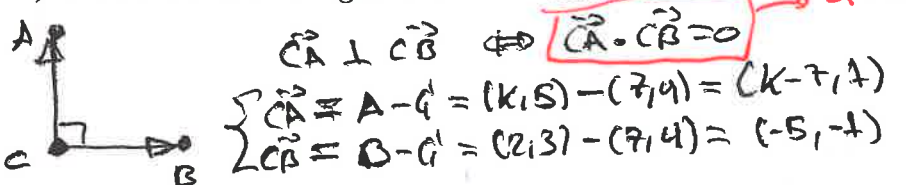 A
C
B
CA ⊥ CB ⇔ CA • CB = 0
CA = A - C = (K,5) - (7,4) = (K-7, 1)
CB = B - C = (2,3) - (7,4) = (-5, -1)